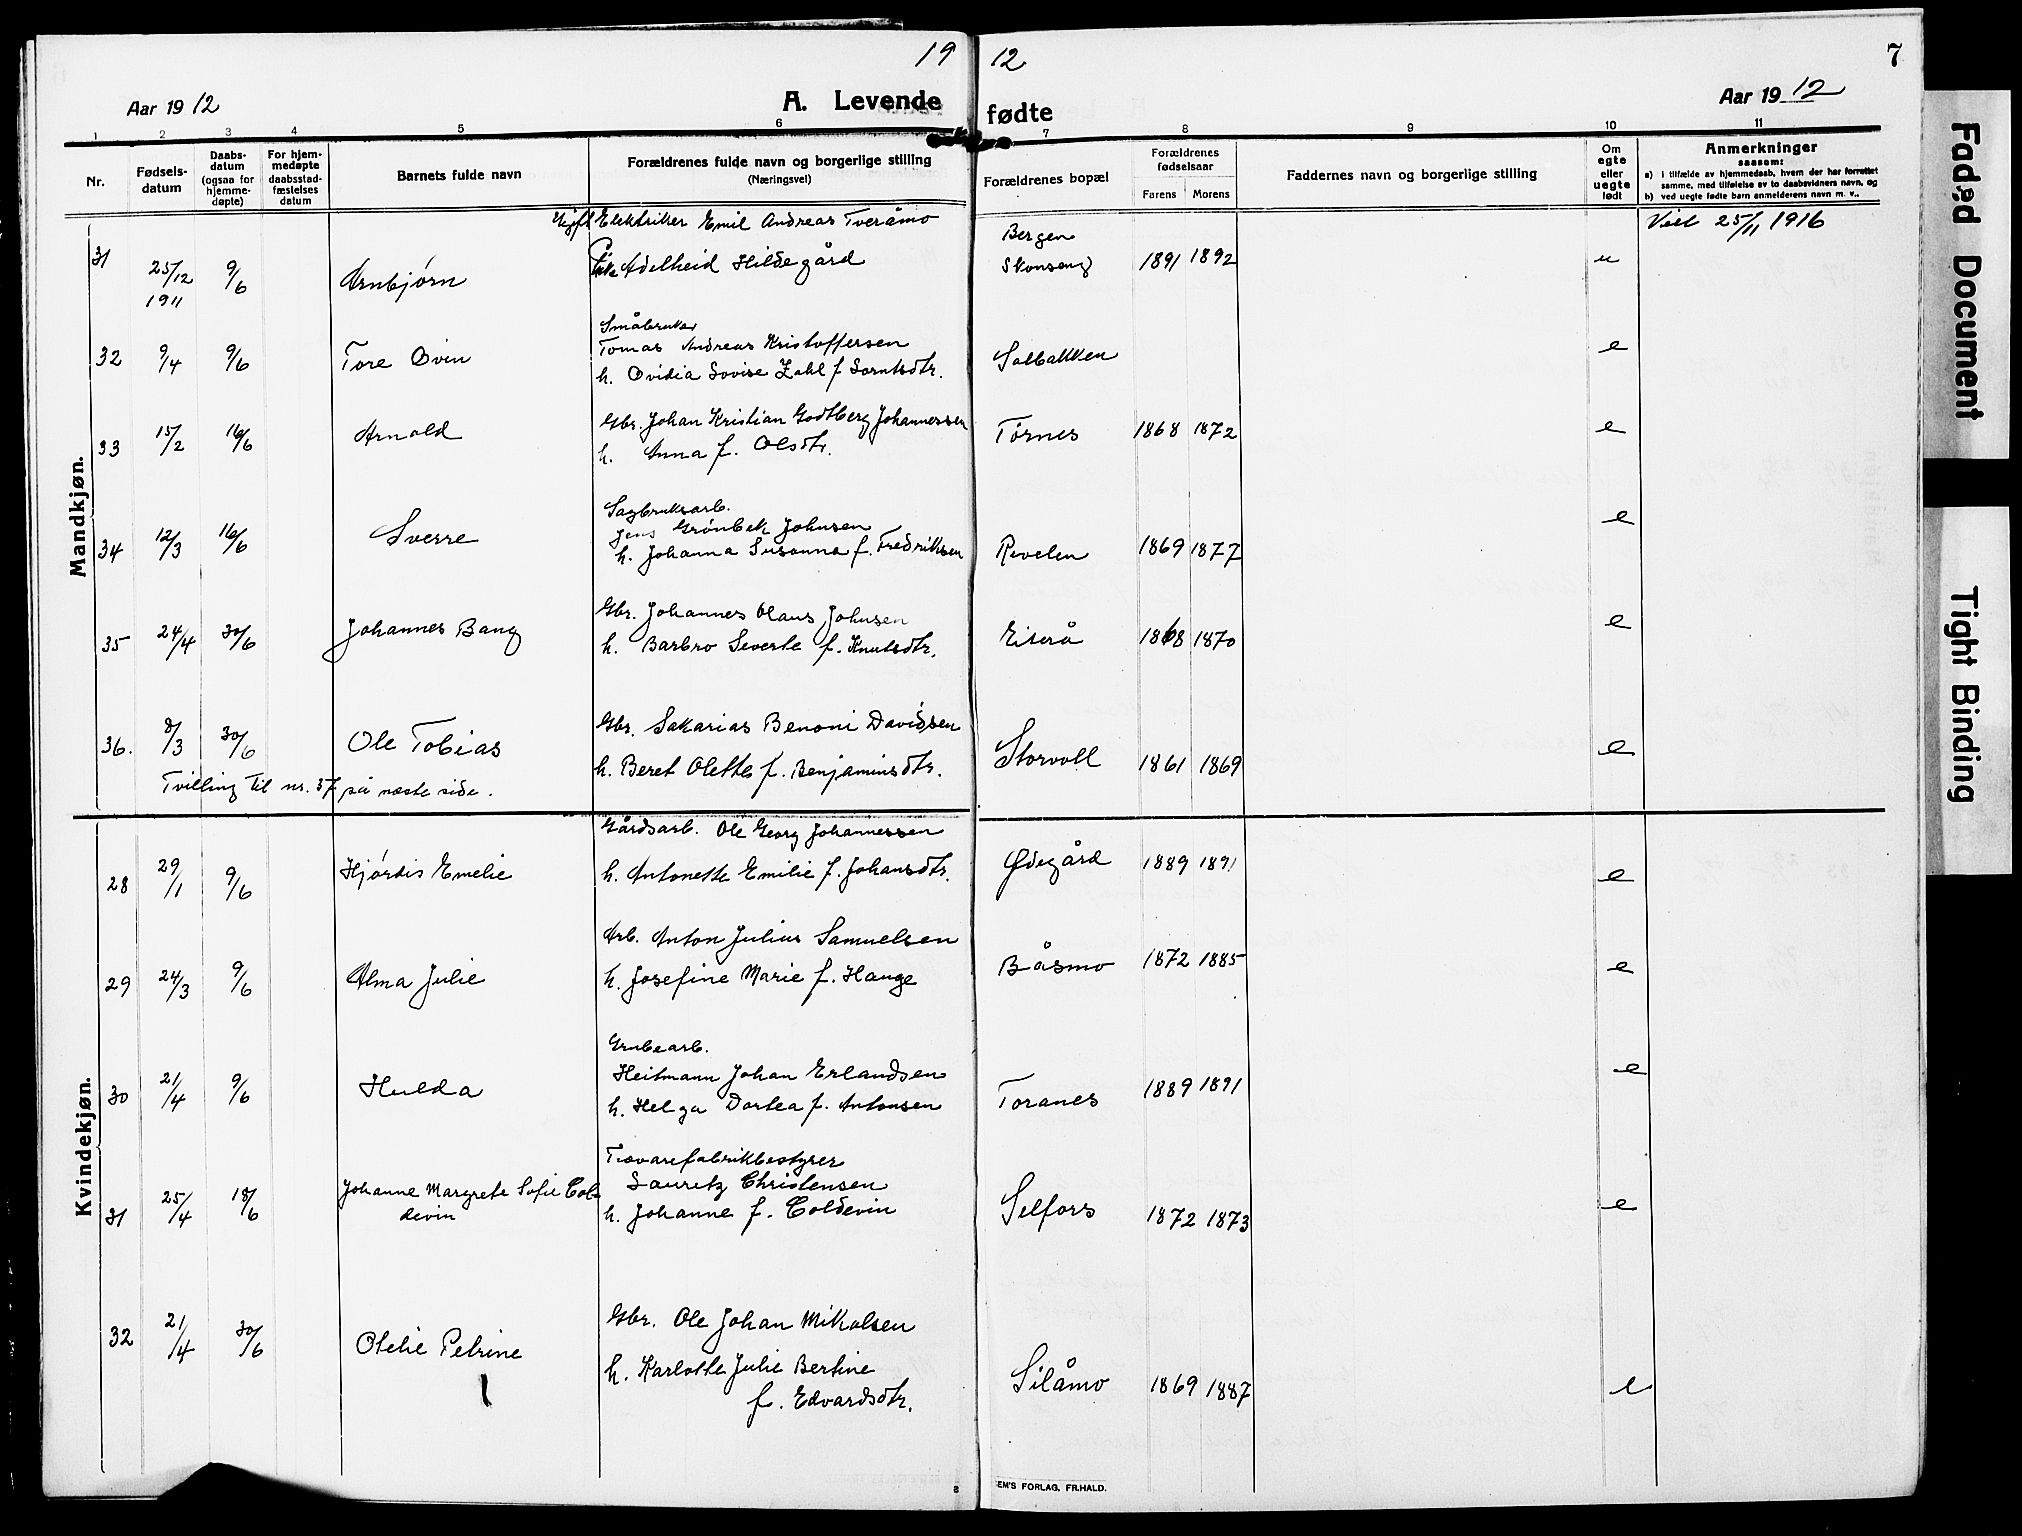 19 12
7
Aar 1912
A. Levende fødte
Aar 1912
1 2 3 4 5 6 7 8 9 10 11
Nr.
Fødsels-
datum
Daabs-
datum
(ogsaa for
hjemme-
døpte)
For hjem-
medøpte
daabsstad-
fæstelses
datum
Barnets fulde navn
Forældrenes fulde navn og borgerlige stilling
(Næringsvei)
Forældrenes bopæl
Forældrenes
fødselsaar
Farens Morens
Faddernes navn og borgerlige stilling
Om
egte
eller
uegte
født
Anmerkninger
saasom:
a) i tilfælde av hjemmedaab, hvem der har forrettet
samme, med tilføielse av to daabsvidners navn, og
b) ved uegte fødte barn anmelderens navn m. v..
Mandkjøn.
Ugift Elektriker Emil Andreas Tveråmo Bergen Viet 25/11 1916
31 25/12 1911 9/6 Arnbjørn Pike Adelheid Hildegård Skonseng 1891 1892 u
Småbruker
32 9/4 9/6 Tore Ovin Tomas Andreas Kristoffersen Solbakken e
h. Ovidia Lovise Zahl f. Lorntsdtr.
33 15/2 16/6 Arnold Gbr. Johan Kristian Godtberg Johannessen Tørnes 1868 1872 e
h. Anna f. Olsdtr.
Sagbruksarb.
34 12/3 16/6 Sverre Jens Grønbek Johnsen Revelen 1869 1877 e
h. Johanna Susanna f. Fredriksen
35 24/4 30/6 Johannes Bang Gbr. Johannes Olaus Johnsen Eiterå 1868 1870 e
h. Barbro Severte f. Knutsdtr.
36. 8/3 30/6 Ole Tobias Gbr. Sakarias Benoni Davidsen Storvoll 1861 1869 e
h. Beret Olette f. Benjaminsdtr.
Tvilling til nr. 37 på næste side.
Kvindekjøn.
Gårdsarb. Ole Georg Johannessen
28 29/1 9/6 Hjørdis Emelie h. Antonette Emilie f. Johansdtr. Ødegård 1889 1891 e
Arb. Anton Julius Samuelsen
29 24/3 9/6 Alma Julie h. Josefine Marie f. Hauge Båsmo 1872 1885 e
Grubearb.
30 21/4 9/6 Hulda Heitmann Johan Erlandsen Toranes 1889 1891 e
h. Helga Dortea f. Antonsen
Trævarefabrikbestyrer
31 25/4 18/6 Johanne Margrete Sofie Col- Lauretz Christensen Selfors 1872 1873 e
devin h. Johanne f. Coldevin
32 21/4 30/6 Otelie Petrine Gbr. Ole Johan Mikalsen Silåmo 1869 1887 e
h. Karlotte Julie Bertine
f. Edvardsdtr.
8
EM'S FORLAG, FR.HALD.
Faded Document
Tight Binding